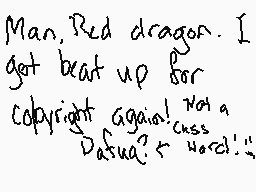 Man, Red dragon. I
got beat up for
copyright again! Not a
Dafuq? ← cuss word!!